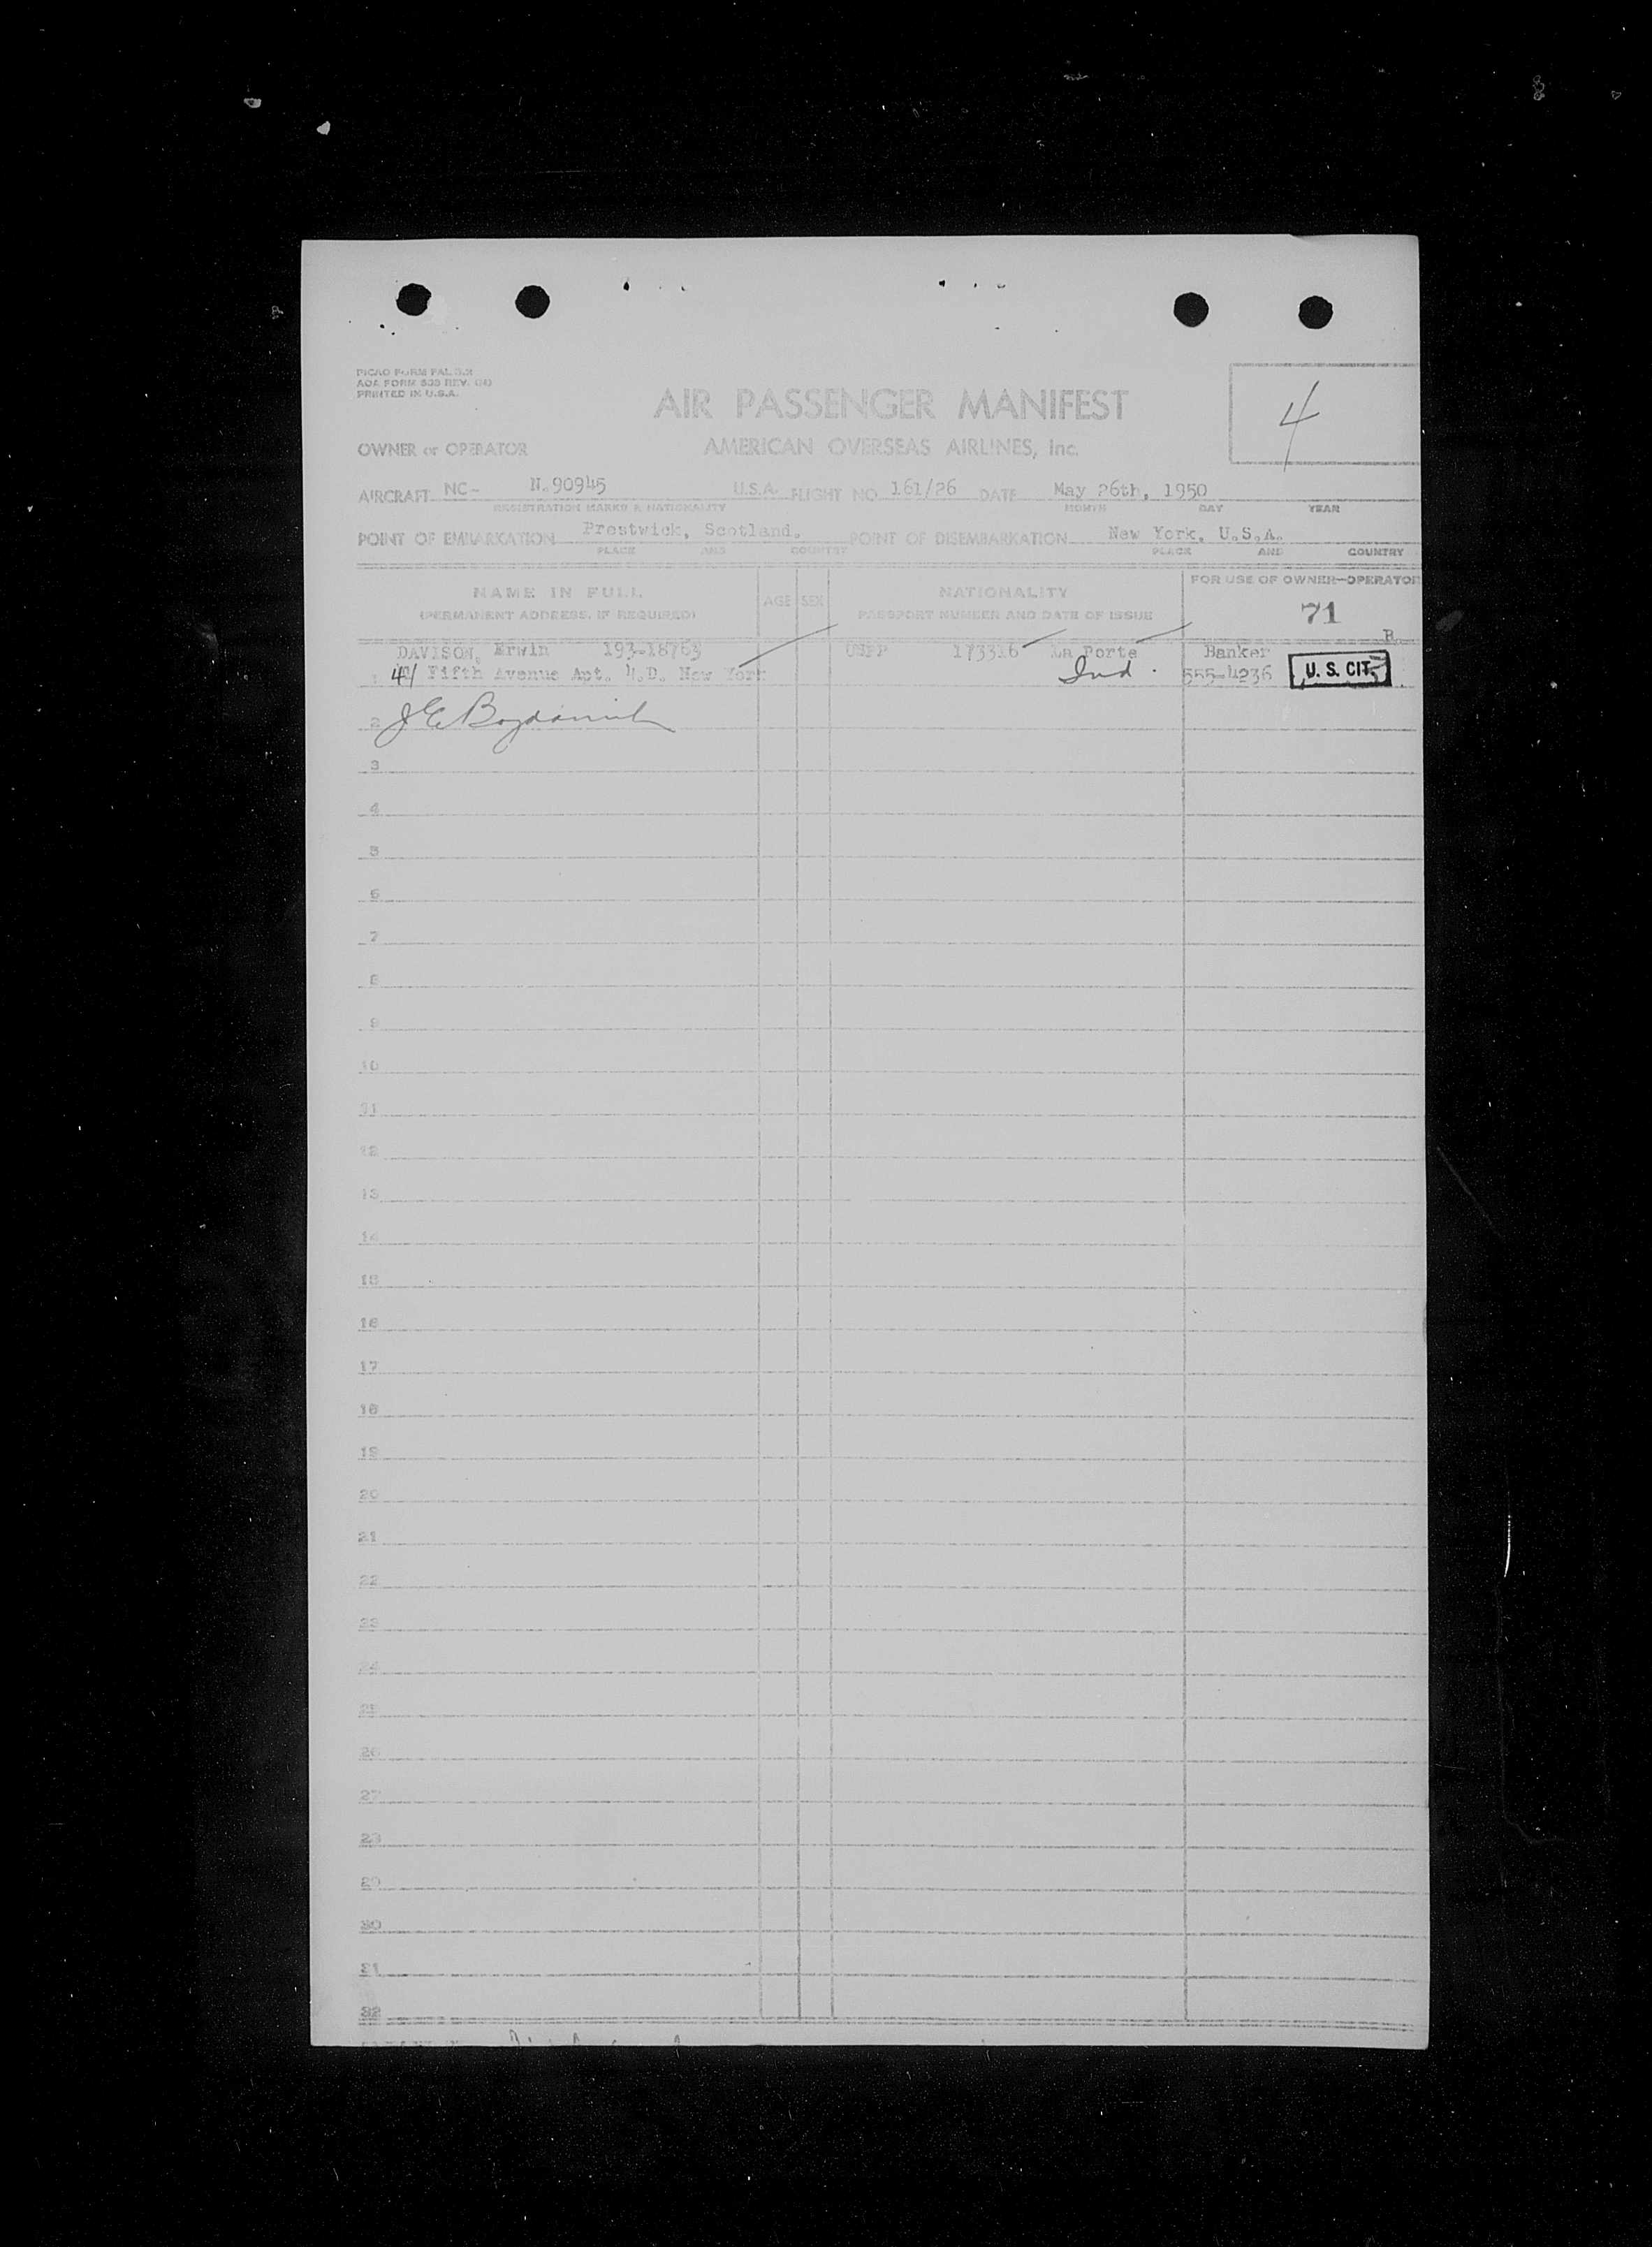 PICAO FORM FAL 3.2
AOA FORM REV.
PRINTED IN U.S.A.
4
AIR PASSENGER MANIFEST
OWNER or OPERATOR AMERICAN OVERSEAS AIRLINES, Inc.
AIRCRAFT NC- N.90945 U.S.A. FLIGHT NO. 161/26 DATE May 26th, 1950
REGISTRATION MARKS & NATIONALITY MONTH DAY YEAR
POINT OF EMBARKATION Prestwick, Scotland. POINT OF DISEMBARKATION New York, U.S.A.
PLACE AND COUNTRY PLACE AND COUNTRY
NAME IN FULL AGE SEX NATIONALITY FOR USE OF OWNER-OPERATOR
(PERMANENT ADDRESS, IF REQUIRED) PASSPORT NUMBER AND DATE OF ISSUE 71
B.
DAVISON, Erwin 193-18763 USPP 173316 La Porte Banker
1 41 Fifth Avenue Apt. 4.D. New York Ind. 555-4236 U. S. CIT.
2
3
4
5
6
7
8
9
10
11
12
13
14
15
16
17
18
19
20
21
22
23
24
25
26
27
28
29
30
31
32